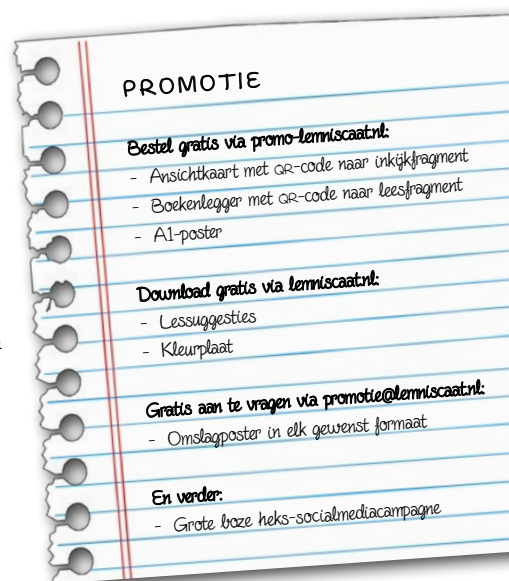 PROMOTIE
Bestel gratis via promo-lemniscaat.nl:
- Ansichtkaart met QR-code naar inkijkfragment
- Boekenlegger met QR-code naar leesfragment
- A1-poster
Download gratis via lemniscaat.nl:
- Lessuggesties
- Kleurplaat
Gratis aan te vragen via promotie@lemniscaat.nl:
- Omslagposter in elk gewenst formaat
En verder:
- Grote boze heks-socialmediacampagne